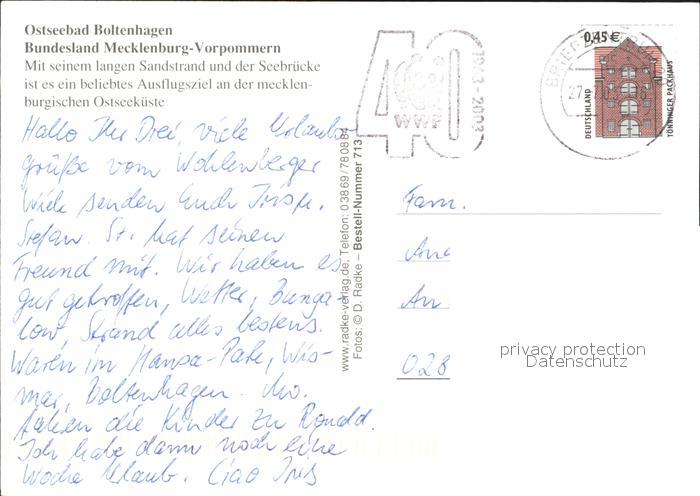 Ostseebad Boltenhagen
Bundesland Mecklenburg-Vorpommern
Mit seinem langen Sandstrand und der Seebrücke
ist es ein beliebtes Ausflugsziel an der mecklen-
burgischen Ostseeküste
Hallo Ihr Drei, viele Urlaubs-
grüße vom Wohlenberger
Wiek senden Euch
Stefan. St. hat seinen
Freund mit. Wir haben es
gut getroffen, Wetter, Bunga-
low, Strand alles bestens.
Waren im Hansa-Park, Wis-
mar, Boltenhagen. Mo.
fahren die Kinder zu Ronald.
Ich habe dann noch eine
Woche Urlaub. Ciao Ines
www.radke-verlag.de, Telefon: 03869/780884
Fotos: © D. Radke – Bestell-Nummer 713
40
WWF
1963-2003
0,45 €
DEUTSCHLAND
TÖNNINGER PACKHAUS
Fam.
An
028
privacy protection
Datenschutz